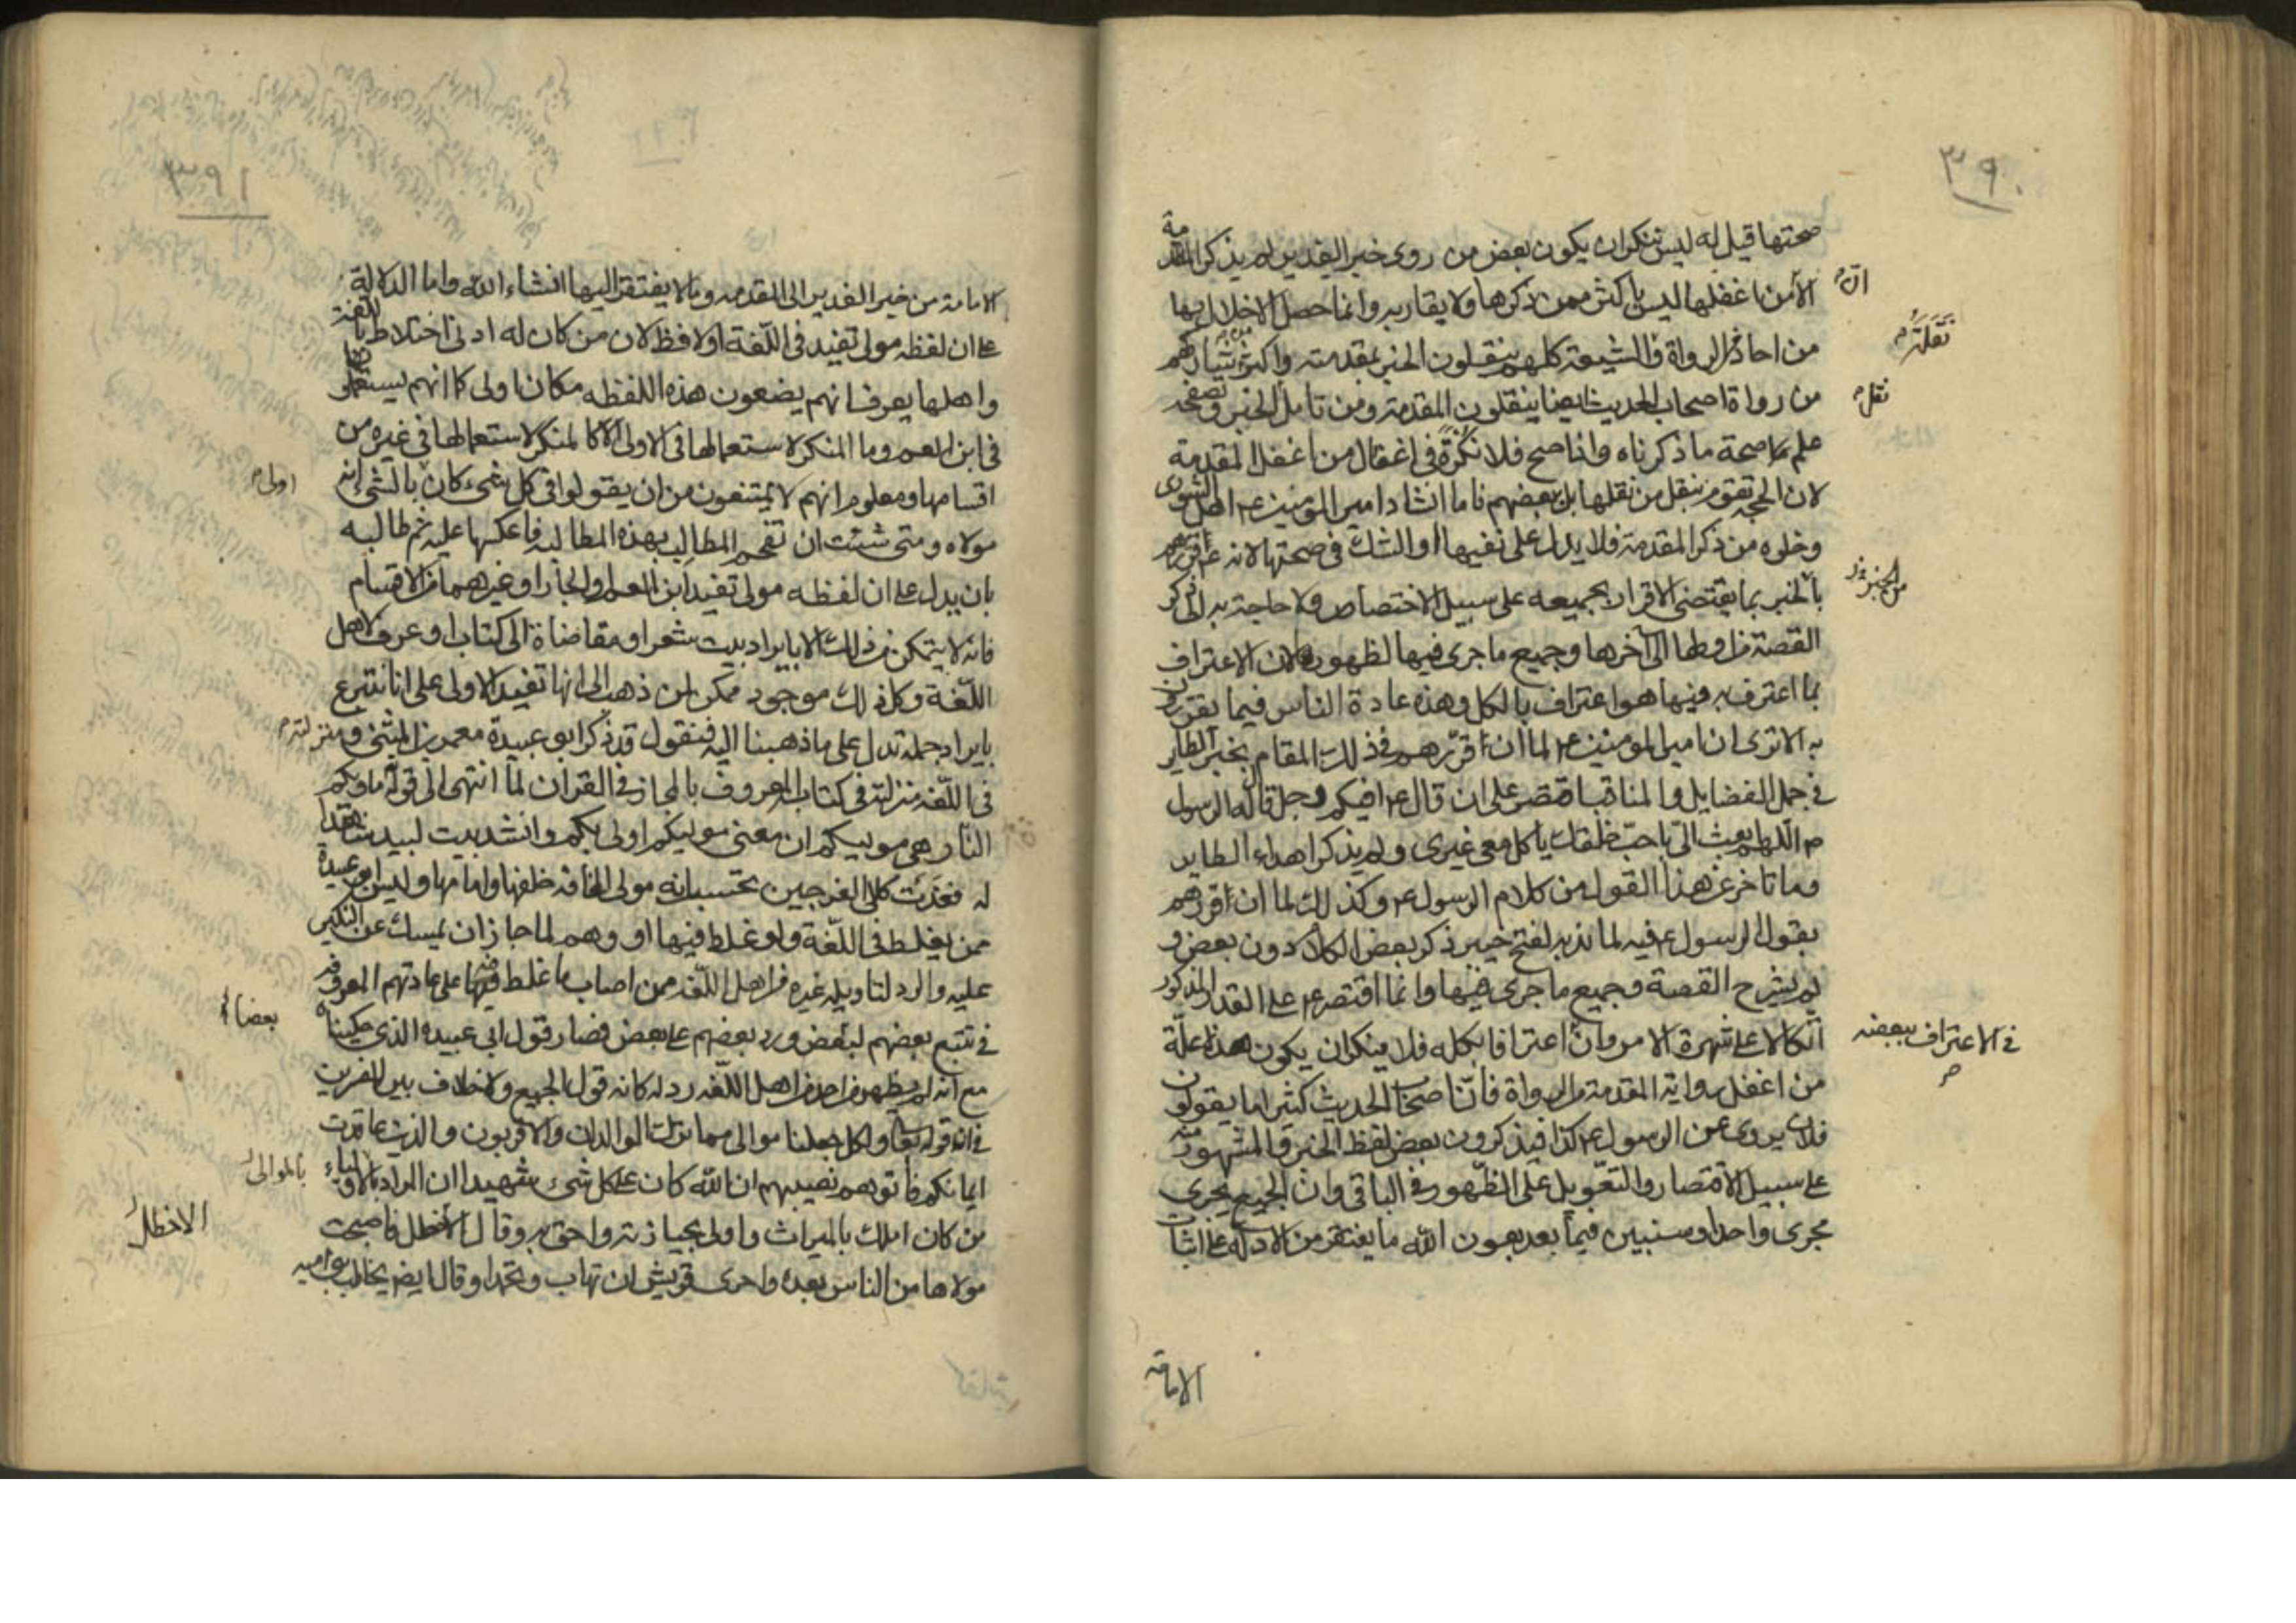 ٣٩٠
صحتها قيل له ليس ننكر ان يكون بعض من روى خبر الغدير لم يذكر المقدمة
الا ان من اغفلها ليس باكثر ممن ذكرها ولا يقاربه وانما حصل الاخلال بها
من احاد الرواة والشيعة كلهم ينقلون الخبر بمقدمته واكثر من شاركهم
من رواة اصحاب الحديث ايضا ينقلون المقدمة ومن تامل الخبر وتصفحه
علم صحة ما ذكرناه واذا صح فلا نكرة في اغفال من اغفل المقدمة
لان الحجة تقوم بنقل من نقلها بل ببعضهم فاما انشاد امير المؤمنين ع اهل الشورى
وخلوه من ذكر المقدمة فلا يدل على نفيها او الشك في صحتها لانه ع قررهم
بالخبر بما يقتضى الاقرار بجميعه على سبيل الاختصاص ولا حاجة به الى ذكر
القصة من اولها الى اخرها وجميع ما جرى فيها لظهوره ولان الاعتراف
بما اعترف به فيها هو اعتراف بالكل وهذه عادة الناس فيما يقررون
به الا ترى ان امير المؤمنين ع لما ان اقررهم في ذلك المقام بخبر الطاير
في جمل الفضايل والمناقب اقتصر على ان قال ع افيكم رجل قال له الرسول
ص اللهم ابعث الى باحب خلقك ياكل معى غيرى ولم يذكر اهداء الطاير
وما تاخر عن هذا القول من كلام الرسول ع وكذلك لما ان اقررهم
بقول الرسول ع فيه لما ندبه لفتح خيبر ذكر بعض الكلام دون بعض و
لم يشرح القصة وجميع ما جرى فيها وانما اقتصر ع على القدر المذكور
اتكالا على شهرة الامر وان اعترافا بكله فلا ينكر ان يكون هذه علة
من اغفل رواية المقدمة من الرواة فان اصحاب الحديث كثيرا ما يقولون
فلان يروى عن الرسول ع كذا فيذكرون بعض لفظ الخبر والمشهور منه
على سبيل الاقتصار والتعويل على الظهور في الباقى وان الجميع يجرى
مجرى واحدا وسنبين فيما بعد بعون الله ما يفتقر من الادلة على اثبات
الامامة
انّ
نقلته
نقل
من الخبر
في الاعتراف ببعضه
٣٩١
الامامة من خبر الغدير الى المقدمه وما لا يفتقر اليها انشاء الله واما الدلالة
على ان لفظه مولى تفيد في اللغة اولى فظ لان من كان له ادنى اختلاط باللغة
واهلها يعرف انهم يضعون هذه اللفظه مكان اولى كما انهم يستعملونها
في ابن العم وما المنكر لاستعمالها في الاولى الا كالمنكر لاستعمالها في غيره من
اقسامها ومعلوم انهم لا يمتنعون من ان يقولوا في كل شىء كان بالشئ انه
مولاه ومتى شئت ان تفحم المطالب بهذه المطالبه فاعكسها عليه ثم طالبه
بان يدل على ان لفظه مولى تفيد ابن العم او الجار او غيرهما من الاقسام
فانه لا يتمكن من ذلك الا بايراد بيت شعر او مقاضاة الى كتاب او عرف لاهل
اللغة وكل ذلك موجود ممكن لمن ذهب الى انها تفيد الاولى على انا نتبرع
بايراد جملة تدل على ما ذهبنا اليه فنقول قد ذكر ابو عبيدة معمر بن المثنى ومنزلته
في اللغه منزلته في كتابه المعروف بالمجاز في القران لما انتهى الى قوله ماويكم
النار هى موليكم ان معنى موليكم اولى بكم وانشد بيت لبيد شاهدا
له فغدت كلا الفرجين تحتسب انه مولى المخافه خلفها وامامها وليس ابو عبيدة
ممن يغلط في اللغة ولو غلط فيها او وهم لما جاز ان يمسك عن النكير
عليه والرد لتاويله غيره من اهل اللغه ممن اصاب ما غلط فيها على عادتهم المعروفه
في تتبع بعضهم لبعض ورد بعضهم على بعض فصار قول ابى عبيده الذى حكيناه
مع انه لم يظهر من احد من اهل اللغه رد له كانه قول الجميع ولا خلاف بين المفسرين
في ان قوله تعالى ولكل جعلنا موالى مما ترك الوالدان والاقربون والذين عاقدت
ايمانكم فاتوهم نصيبهم ان الله كان على كل شىء شهيدا ان المراد بالاولياء
من كان املك بالميراث واولى بحيازته واحق به وقال الاخطل فاصبحت
مولاها من الناس بعده واحرى قريش ان تهاب وتحمدا وقال ايضا يخاطب بنى اميه
اولى
ومنزلته
بعضا
بالموالى
الاخطل